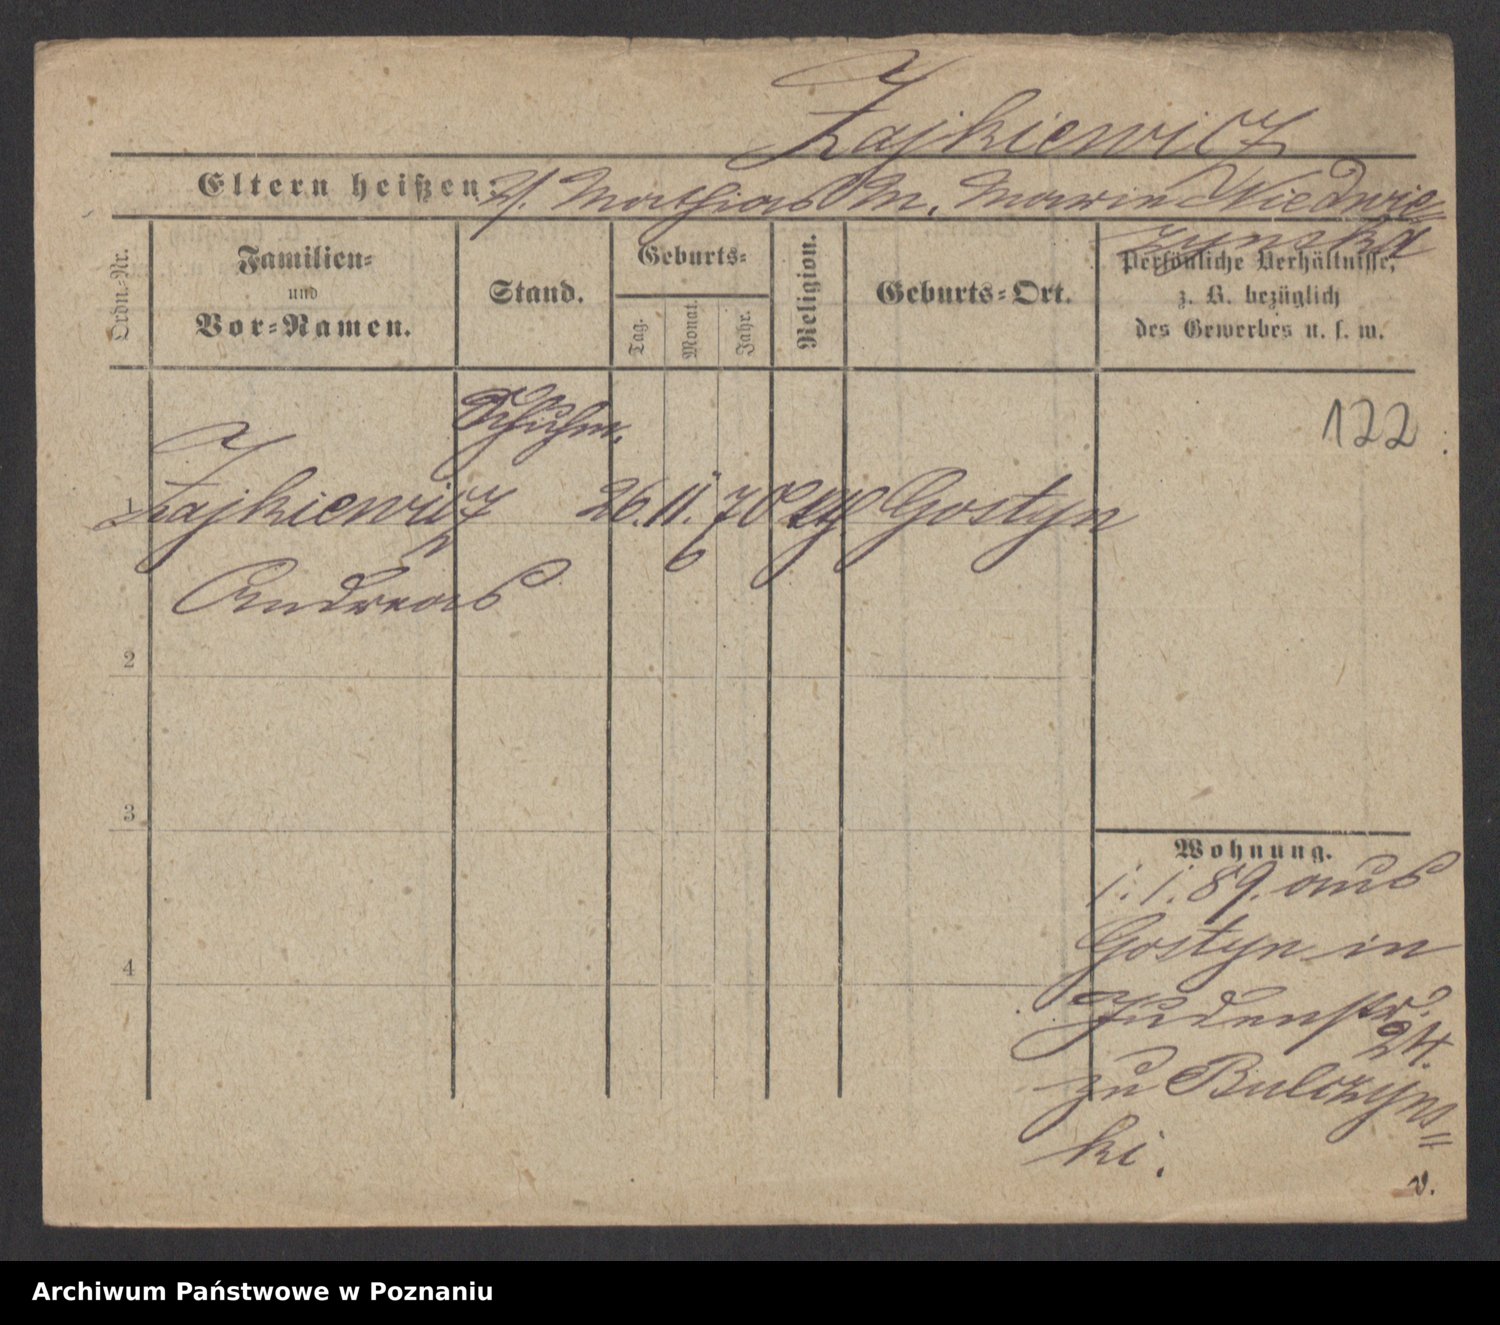 Zajkiewicz
Eltern heißen: V. Mathias M. Marie Niedwie=
zynska
Ordn.-Nr.
Familien-
und
Vor-Namen.
Stand.
Geburts-
Tag.
Monat.
Jahr.
Religion.
Geburts-Ort.
Persönliche Verhältnisse,
z. B. bezüglich
des Gewerbes u. s. w.
122
Schuhm.
1 Zajkiewicz 26. 11. 70 Gostyn
Andreas
2
3
4
Wohnung.
1. 1. 89. aus
Gostyn in
Judenstr.
24.
zu Bulczyns=
ki.
v.
Archiwum Państwowe w Poznaniu